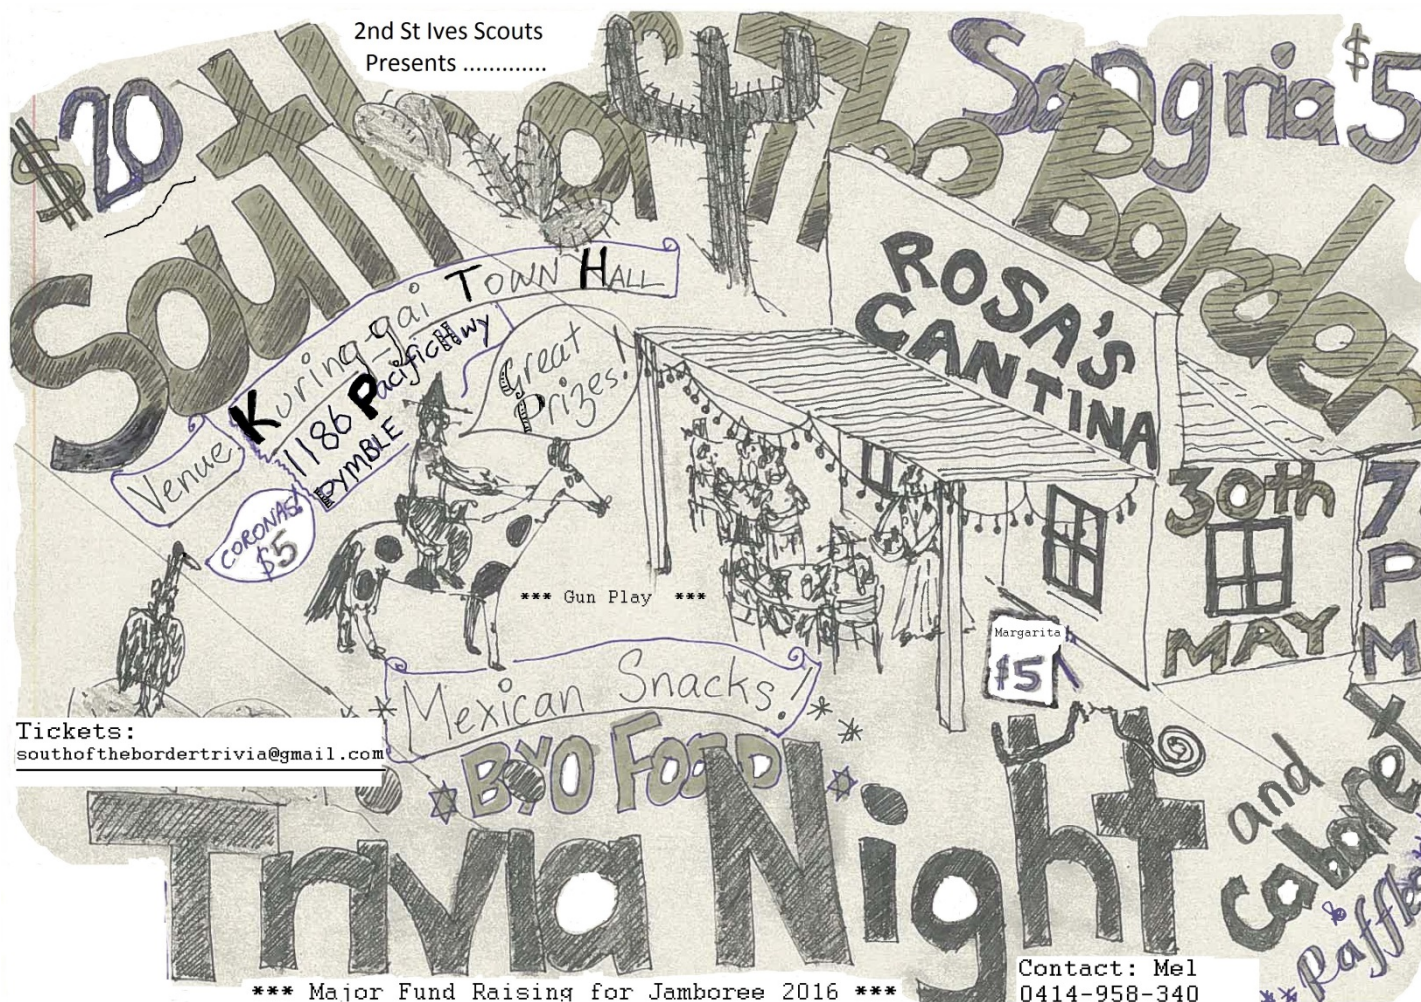 2nd St Ives Scouts
Presents .............
$20
South of The Border
Sangria $5
ROSA'S
CANTINA
Venue Kuring-gai TOWN HALL
1186 Pacific Hwy
PYMBLE
Great
Prizes!
CORONAS!
$5
30th
MAY
7
P
M
*** Gun Play ***
Margarita
$5
Mexican Snacks!
BYO FOOD
Tickets:
southofthebordertrivia@gmail.com
Trivia Night
and
Cabaret
&
*** Major Fund Raising for Jamboree 2016 ***
Contact: Mel
0414-958-340